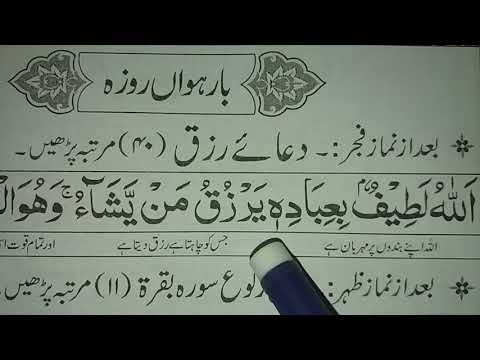 بارہواں روزہ
بعد از نماز فجر:۔ دعائے رزق (۴۰) مرتبہ پڑھیں۔
اَللهُ لَطِيْفٌۢ بِعِبَادِهٖ يَرْزُقُ مَنْ يَّشَآءُ ۚ وَهُوَ
اللہ اپنے بندوں پر مہربان ہے جس کو چاہتا ہے رزق دیتا ہے اور تمام قوت
بعد از نماز ظہر: رکوع سورہ بقرۃ (۱۱) مرتبہ پڑھیں۔